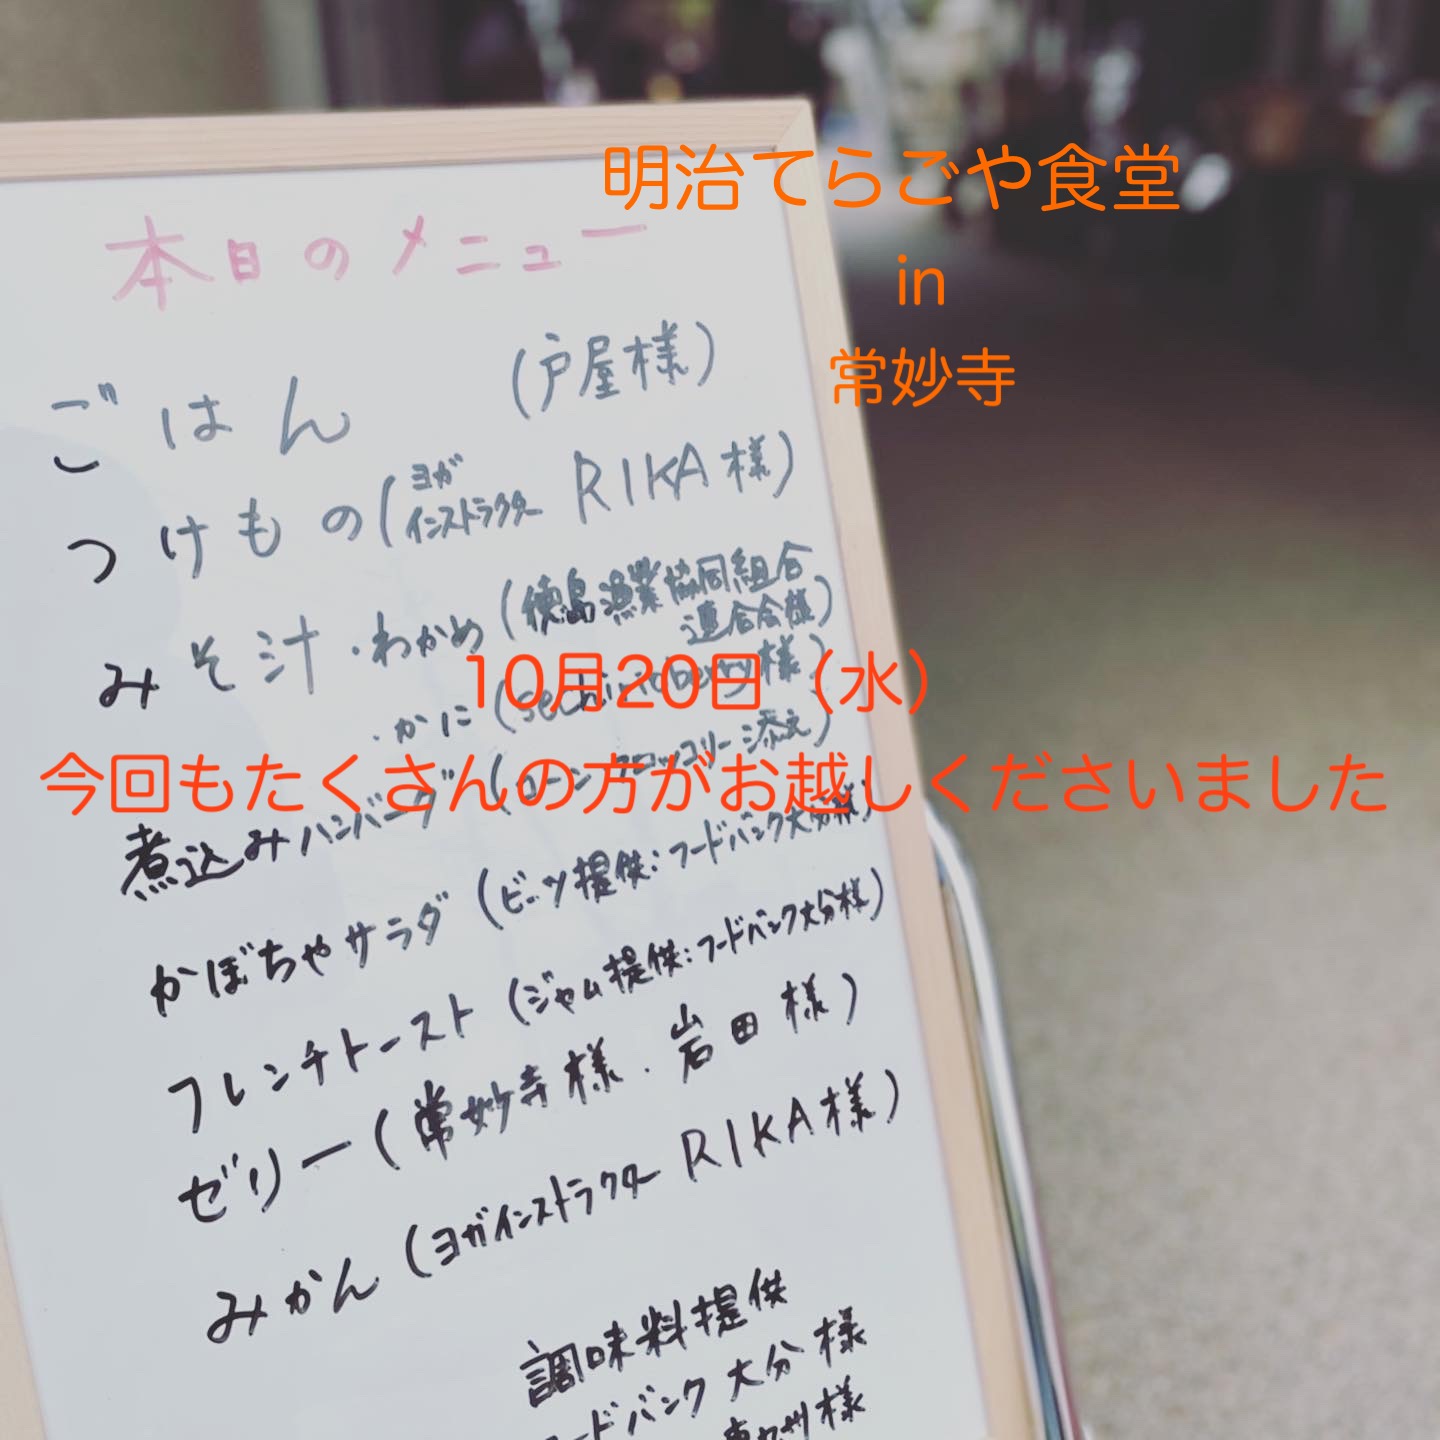 明治てらごや食堂
in
常妙寺
本日のメニュー
ごはん (戸屋様)
つけもの (ヨガインストラクター RIKA様)
みそ汁・わかめ (徳島漁業協同組合
連合会様)
・かに
10月20日(水)
今回もたくさんの方がお越しくださいました
煮込みハンバーグ (コーン ブロッコリー添え)
かぼちゃサラダ (ビーツ提供:フードバンク大分様)
フレンチトースト (ジャム提供:フードバンク大分様)
ゼリー (常妙寺様・岩田様)
みかん (ヨガインストラクター RIKA様)
調味料提供
フードバンク大分様
様